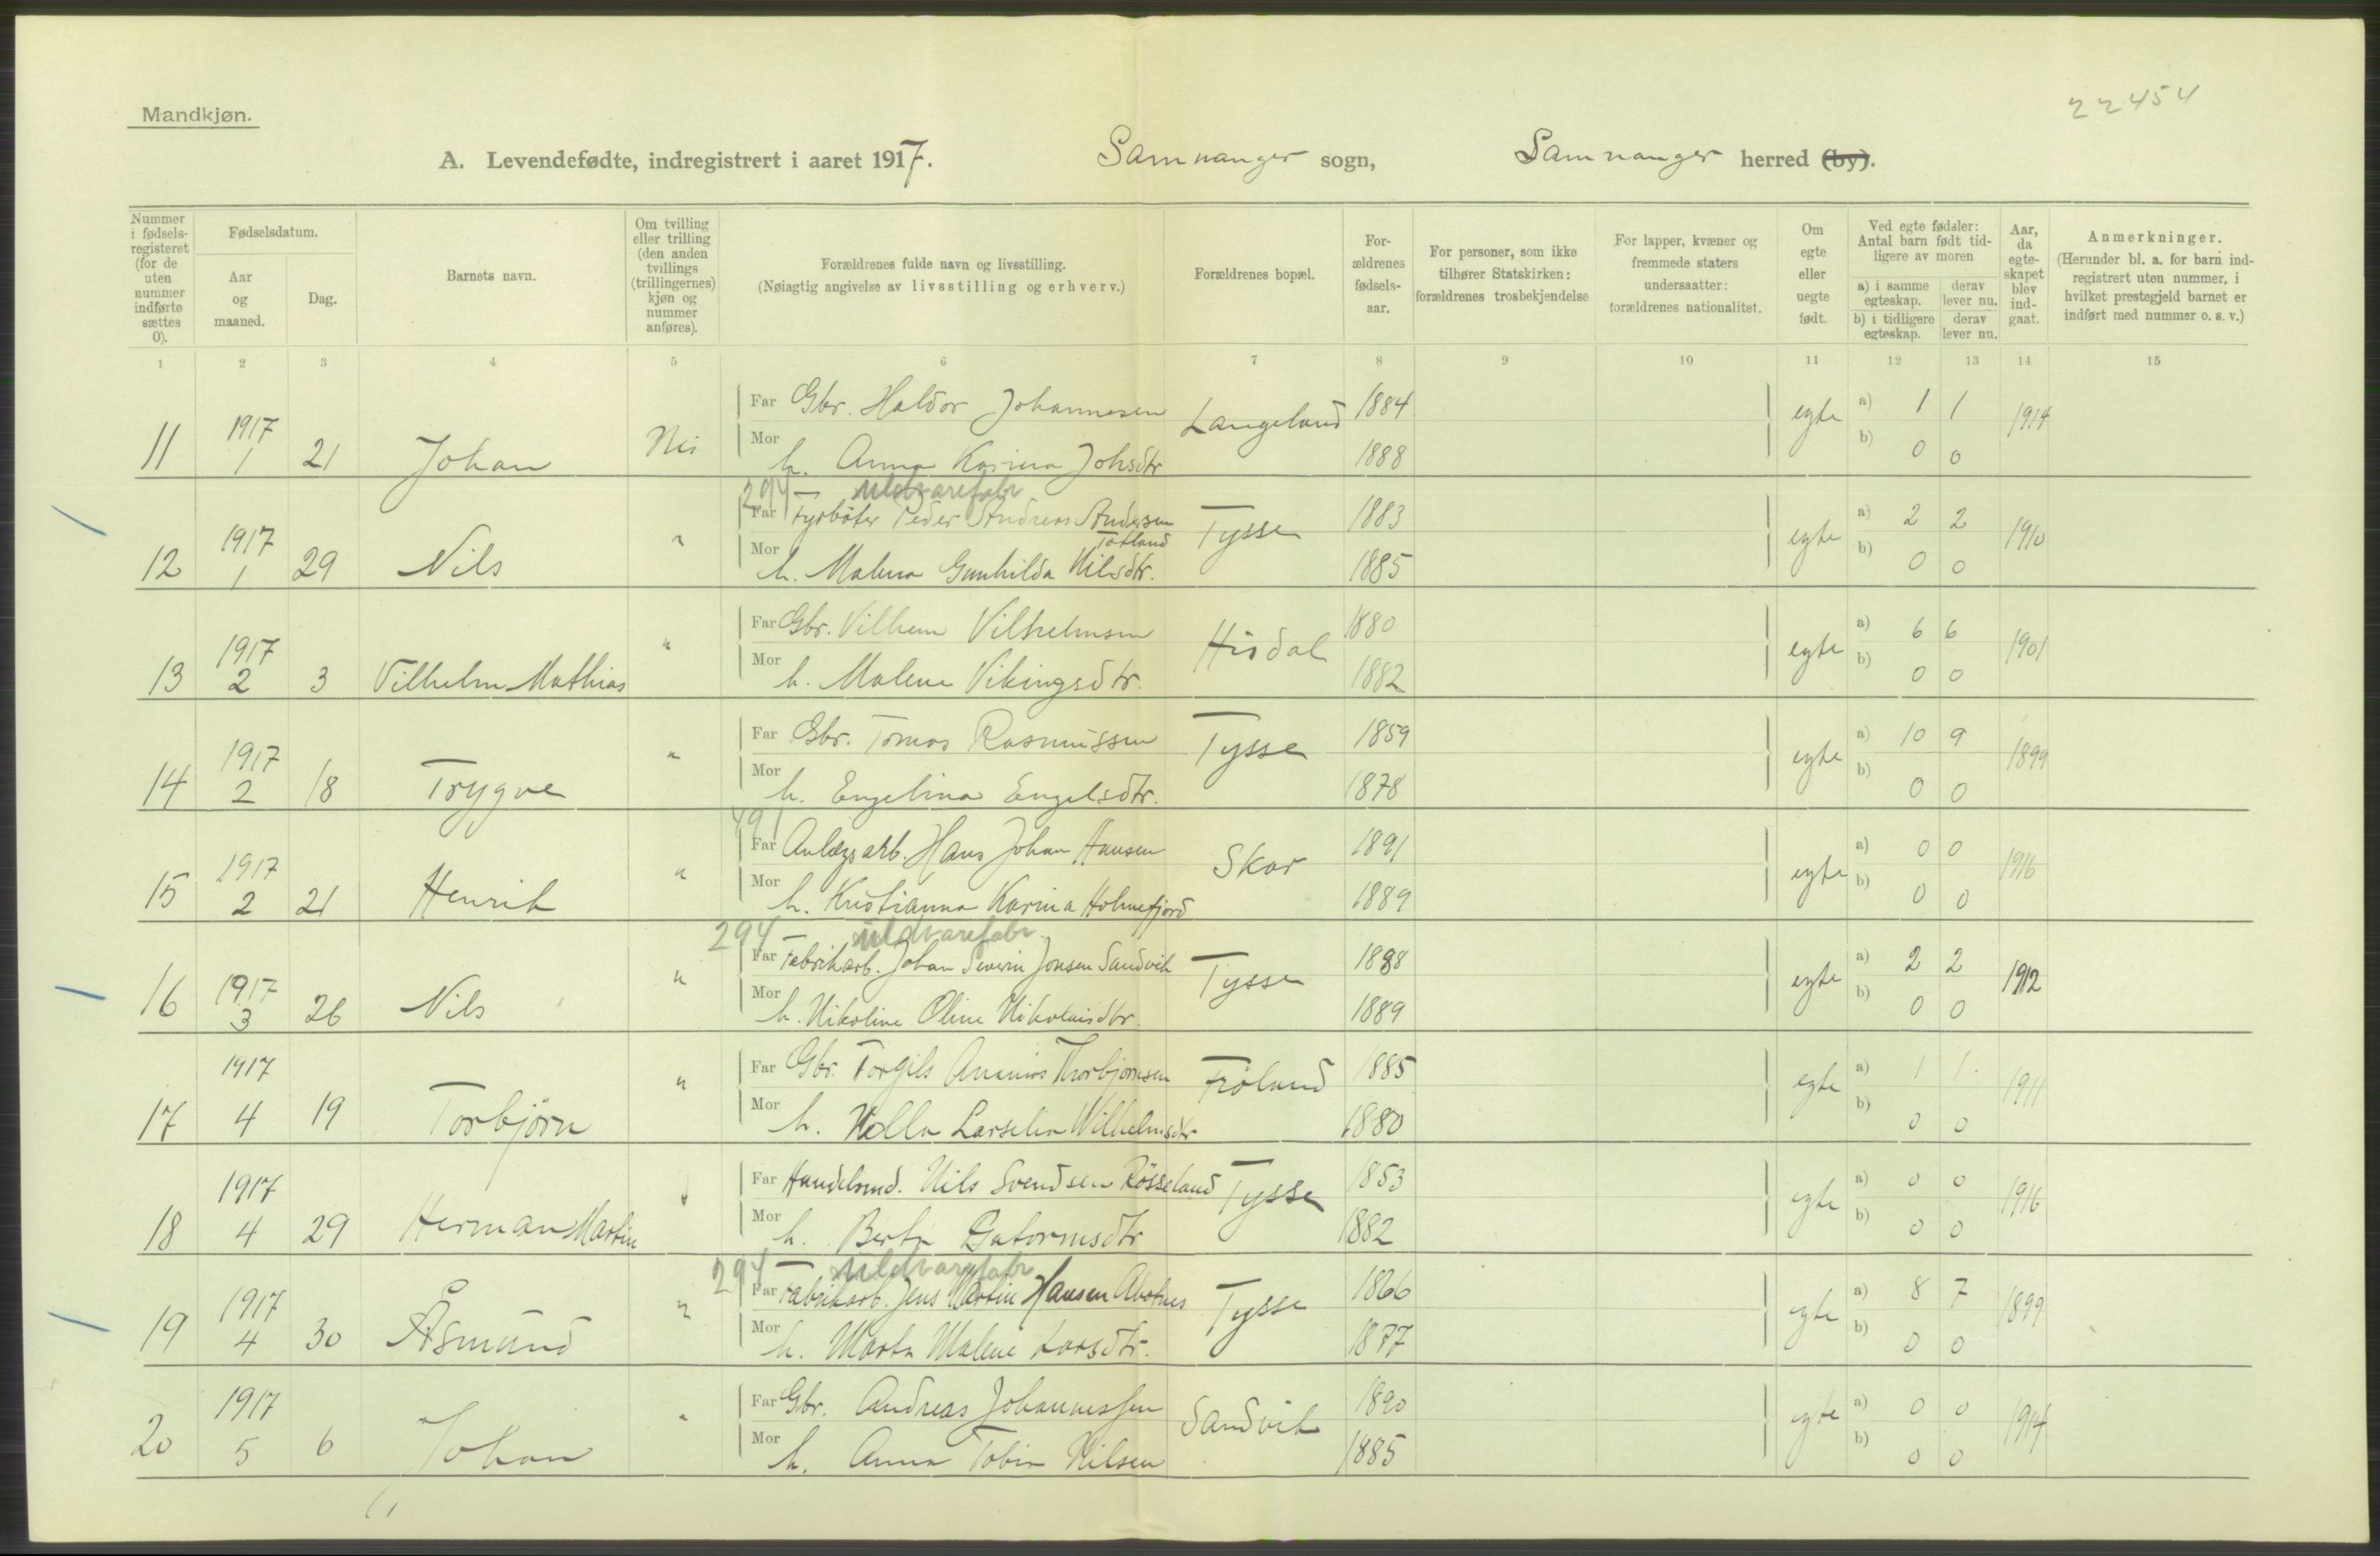 22454
Mandkjøn.
A. Levendefødte, indregistrert i aaret 1917. Samnanger sogn, Samnanger herred (by).
Nummer i fødsels-registeret (for de uten nummer indførte sættes 0). Fødselsdatum. Aar og maaned. Dag. Barnets navn. Om tvilling eller trilling (den anden tvillings (trillingernes) kjøn og nummer anføres). Forældrenes fulde navn og livsstilling. (Nøiagtig angivelse av livsstilling og erhverv.) Forældrenes bopæl. For-ældrenes fødsels-aar. For personer, som ikke tilhører Statskirken: forældrenes trosbekjendelse For lapper, kvæner og fremmede staters undersaatter: forældrenes nationalitet. Om egte eller uegte født. Ved egte fødsler: Antal barn født tid-ligere av moren a) i samme egteskap. derav lever nu. b) i tidligere egteskap. derav lever nu. Aar, da egte-skapet blev ind-gaat. Anmerkninger. (Herunder bl. a. for barn ind-registrert uten nummer, i hvilket prestegjeld barnet er indført med nummer o. s. v.)
1 2 3 4 5 6 7 8 9 10 11 12 13 14 15
Far Gbr. Haldor Johannesen Langeland 1884 a) 1 1
11 1917 1 21 Johan Nei egte 1914
Mor h. Anna Karina Johsdtr 1888 b) 0 0
294 uldvarefabr
Far Fyrbøter Peder Andreas Andersen Totland Tysse 1883 a) 2 2
12 1917 1 29 Nils " egte 1910
Mor h. Malena Gunhilda Nilsdtr. 1885 b) 0 0
Far Gbr. Vilhem Vilhelmsen Hisdal 1880 a) 6 6
13 1917 2 3 Vilhelm Mathias " egte 1901
Mor h. Malene Vikingsdtr. 1882 b) 0 0
Far Gbr. Tomas Rasmussen Tysse 1859 a) 10 9
14 1917 2 18 Trygve " egte 1899
Mor h. Engelina Engelsdtr. 1878 b) 0 0
491
Far Anlægsarb. Hans Johan Hansen Skar 1891 a) 0 0
15 1917 2 21 Henrik " egte 1916
Mor h. Kristianna Karina Holmefjord 1889 b) 0 0
294 uldvarefabr.
Far Fabrikarb. Johan Severin Jonsen Sandvik Tysse 1888 a) 2 2
16 1917 3 26 Nils " egte 1912
Mor h. Nikoline Oline Nikolaisdtr. 1889 b) 0 0
Far Gbr. Torgils Ananias Thorbjørnsen Frøland 1885 a) 1 1
17 1917 4 19 Torbjørn " egte 1911
Mor h. Larselia Wilhelmsdtr 1880 b) 0 0
Far Handelsmd. Nils Svendsen Røsseland Tysse 1853 a) 0 0
18 1917 4 29 Herman Martin " egte 1916
Mor h. Berta Gutormsdtr 1882 b) 0 0
294 uldvarefabr
Far Fabrikarb. Jens Martin Hansen Tysse 1866 a) 8 7
19 1917 4 30 Åsmund " egte 1899
Mor h. Marta Malene Larsdtr. 1877 b) 0 0
Far Gbr. Andreas Johannessen Sandvik 1890 a) 0 0
20 1917 5 6 Johan " egte 1914
Mor h. Anna Tobia Nilsen 1885 b) 0 0